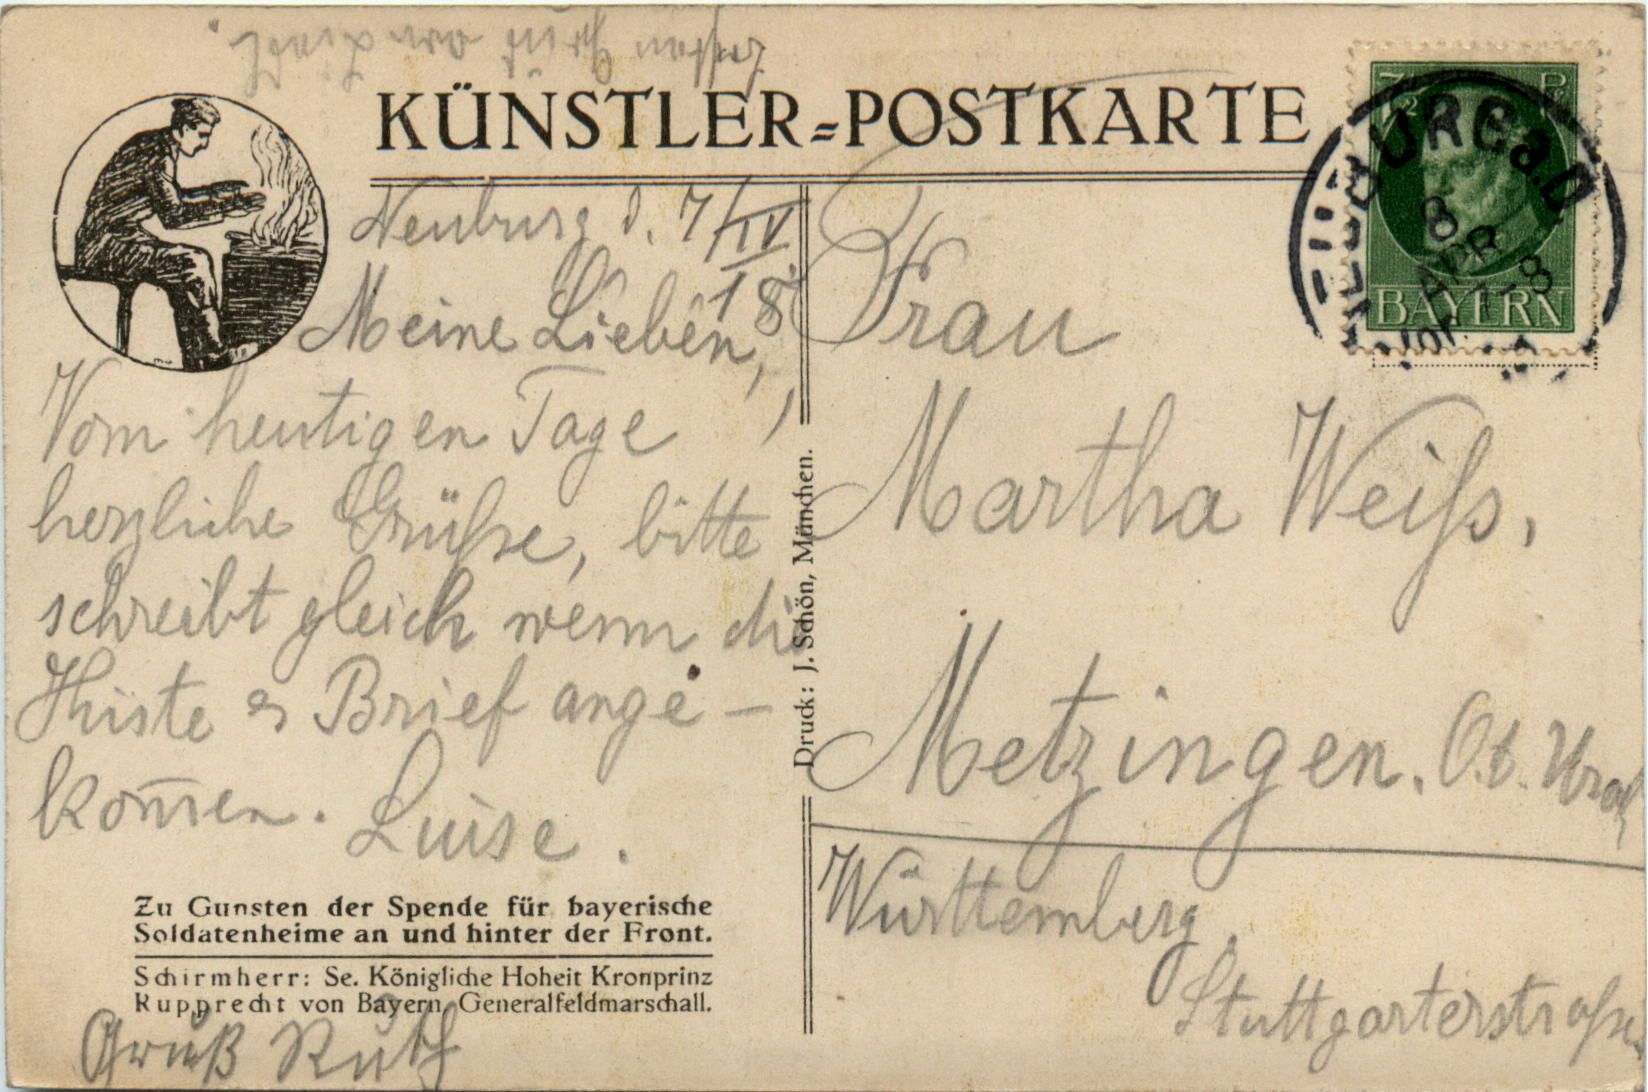 KÜNSTLER-POSTKARTE
7½ P
BAYERN
NEUBURG a.D.
8 APR
Neuburg d. 7/IV
18.
Meine Lieben,
Vom heutigen Tage
herzliche Grüsse, bitte
schreibt gleich wenn die
Kiste & Brief ange-
kom̅en.
Luise.
Zu Gunsten der Spende für bayerische
Soldatenheime an und hinter der Front.
Schirmherr: Se. Königliche Hoheit Kronprinz
Rupprecht von Bayern, Generalfeldmarschall.
Gruß Ruth
Druck: J. Schön, München.
Frau
Martha Weiss,
Metzingen. O.A. Urach
Württemberg
Stuttgarterstrasse